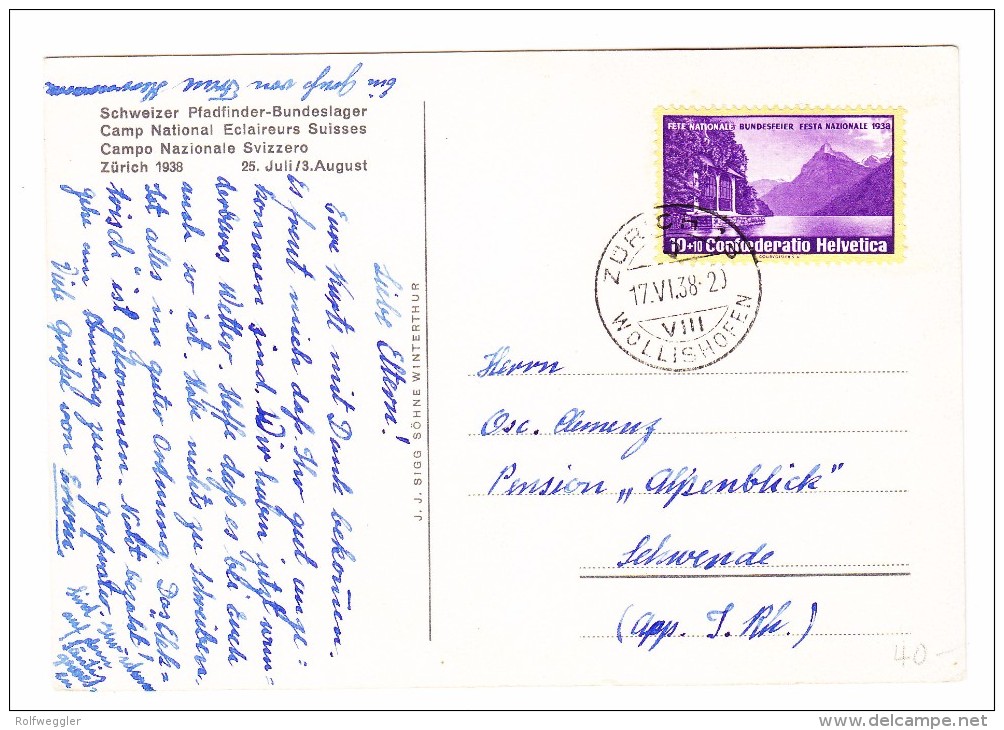 Schweizer Pfadfinder-Bundeslager
Camp National Eclaireurs Suisses
Campo Nazionale Svizzero
Zürich 1938 25. Juli/3. August
Ein Gruß von Frau
Liebe Eltern!
Eure Karte mit Dank bekommen.
Es freut mich daß Ihr gut ange-
kommen sind. Wir haben jetzt wun-
derbares Wetter. Hoffe daß es bei Euch
auch so ist. Habe nichts zu schreiben.
Ist alles in guter Ordnung. Das "Elek-
trisch" ist gekommen. Nicht bezahlt!
gehe am Sonntag zum Großvater.
Viele Grüße von Erwin
J. J. SIGG SÖHNE WINTERTHUR
FÊTE NATIONALE BUNDESFEIER FESTA NAZIONALE 1938
10+10 Confœderatio Helvetica
COURVOISIER S.A.
ZÜRICH
17.VI.38-20
VIII
WOLLISHOFEN
Herrn
Osc. Clemenz
Pension „Alpenblick"
Schwende
(App. I. Rh.)
40-
Rolfweggler
www.delcampe.net